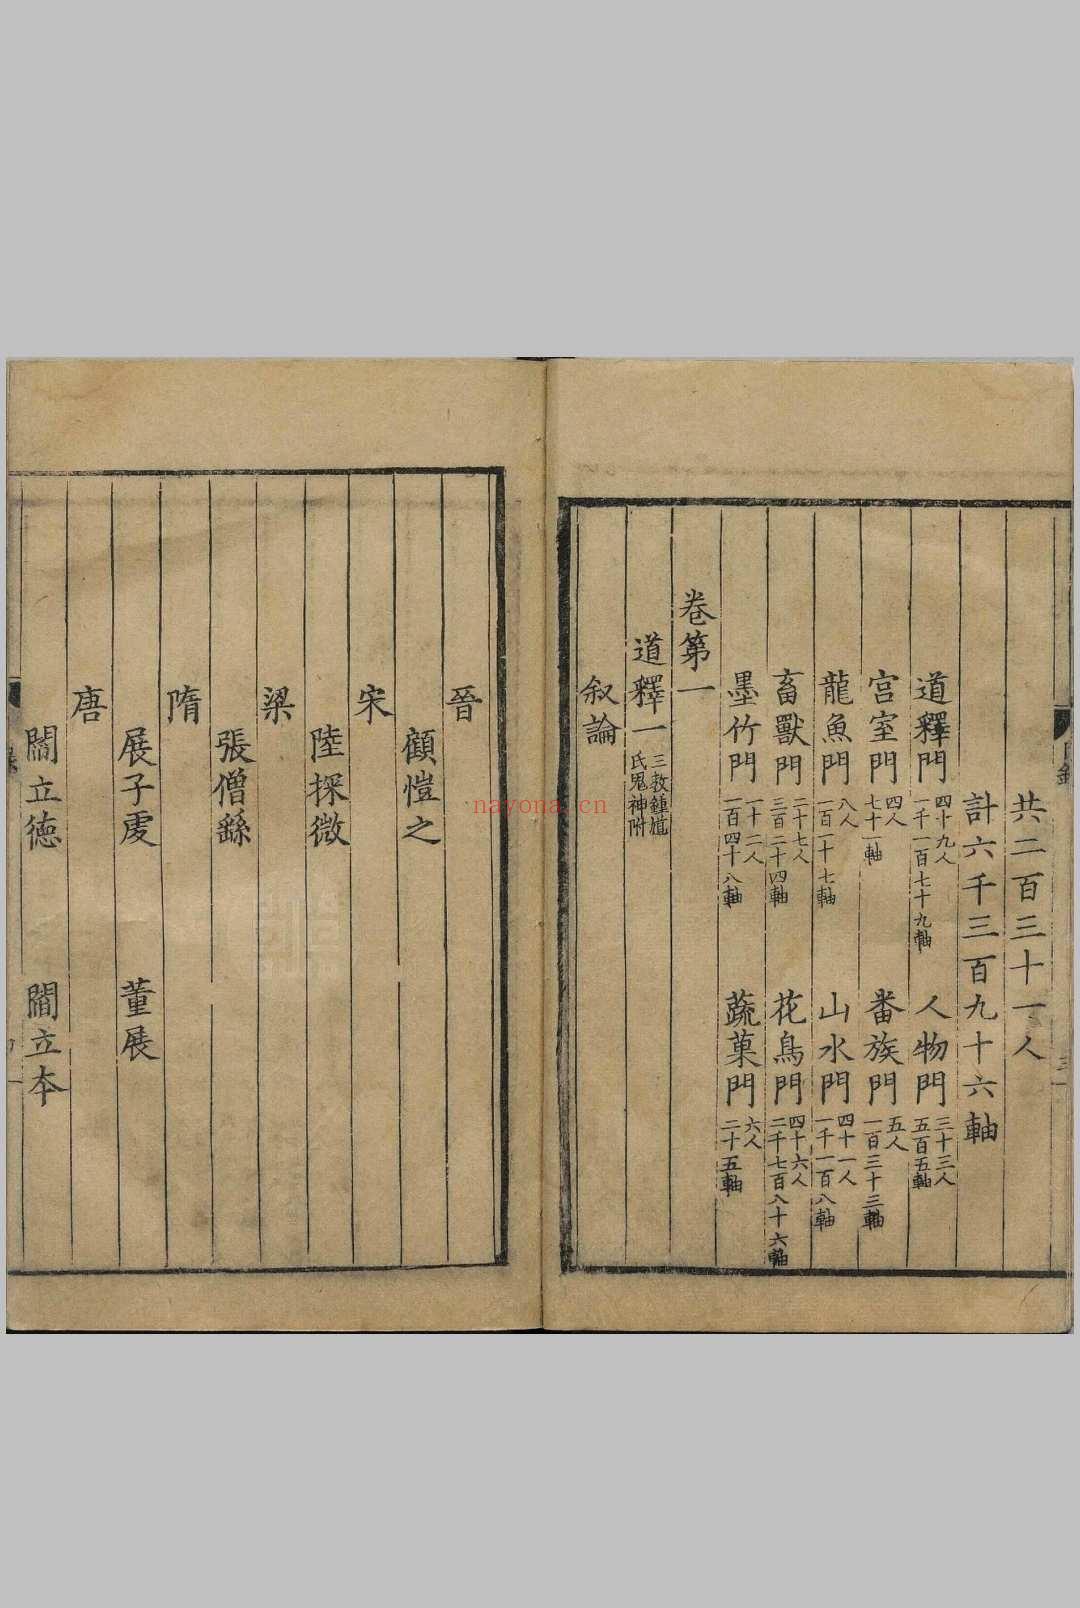 共二百三十一人
計六千三百九十六軸
道釋門 四十九人 一千一百七十九軸 人物門 三十三人 五百五軸
宮室門 四人 七十一軸 番族門 五人 一百三十三軸
龍魚門 八人 一百一十七軸 山水門 四十一人 一千一百八軸
畜獸門 二十七人 三百二十四軸 花鳥門 四十六人 二千七百八十六軸
墨竹門 一十二人 一百四十八軸 蔬菓門 六人 二十五軸
卷第一
道釋一 三教鍾馗氏鬼神附
叙論
晉
顧愷之
宋
陸探微
梁
張僧繇
隋
展子虔 董展
唐
閻立德 閻立本
nayona.cn